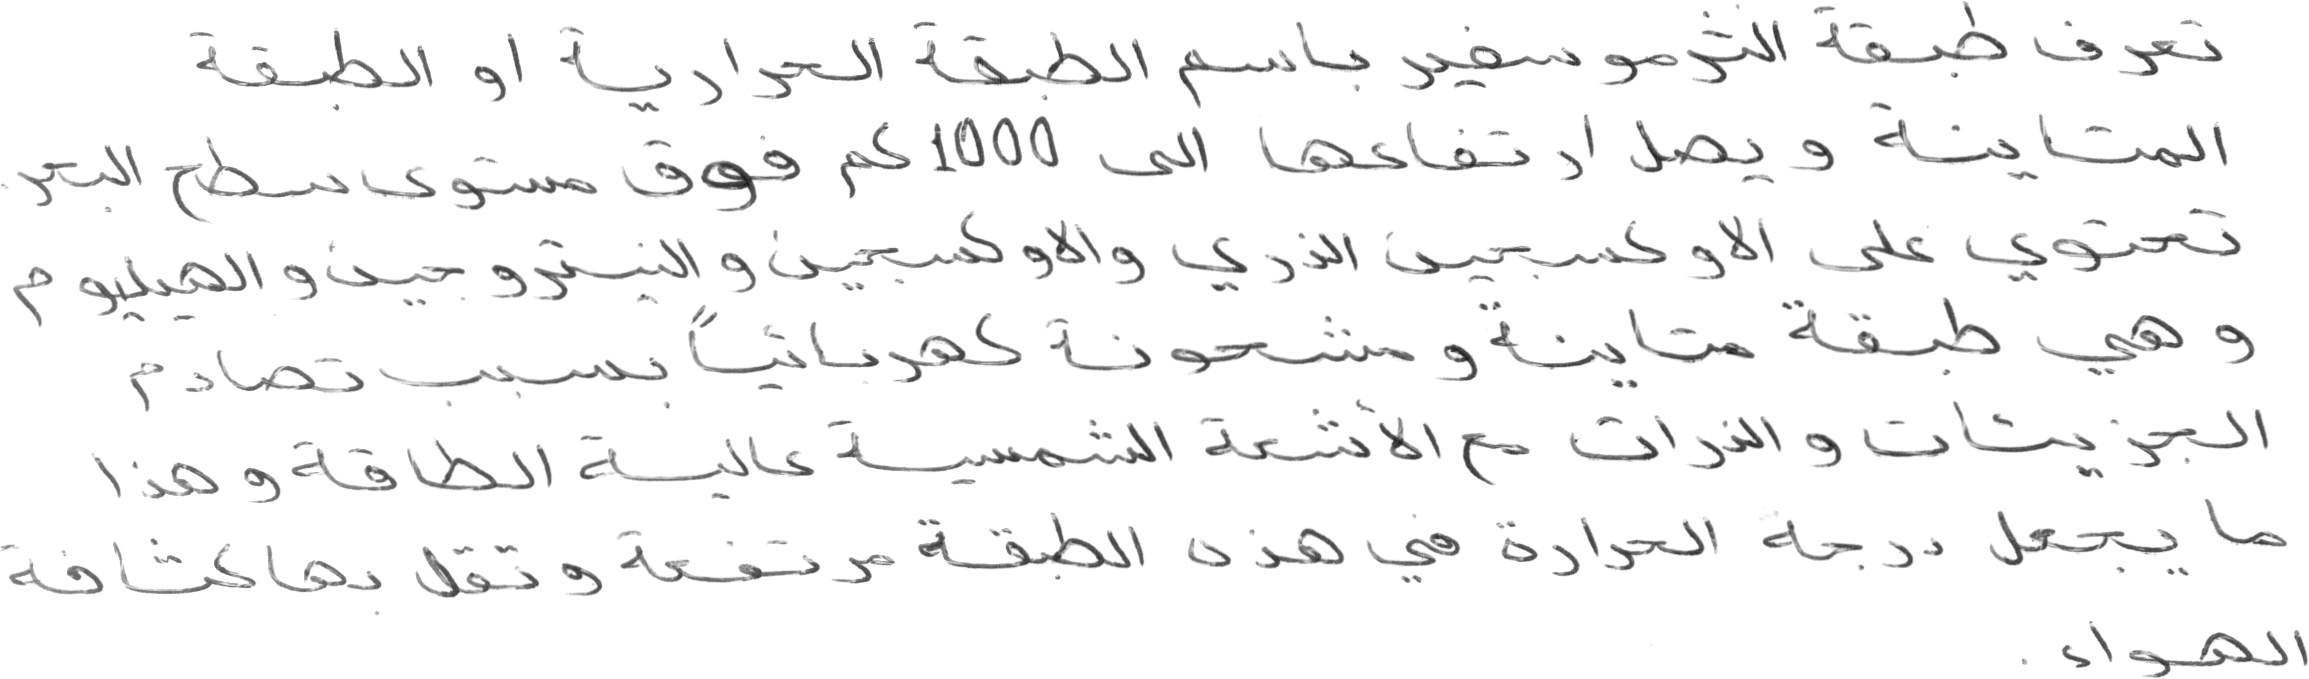 تعرف طبقة الثرموسفير باسم الطبقة الحرارية او الطبقة
المتاينة ويصل ارتفاعها الى 1000 كم فوق مستوى سطح البحر.
تحتوي على الاوكسجين الذري والاوكسجين والنيتروجين والهيليوم
وهي طبقة متاينة ومشحونة كهربائياً بسبب تصادم
الجزيئات والذرات مع الأشعة الشمسية عالية الطاقة وهذا
ما يجعل درجة الحرارة في هذه الطبقة مرتفعة وتقل بها كثافة
الهواء .